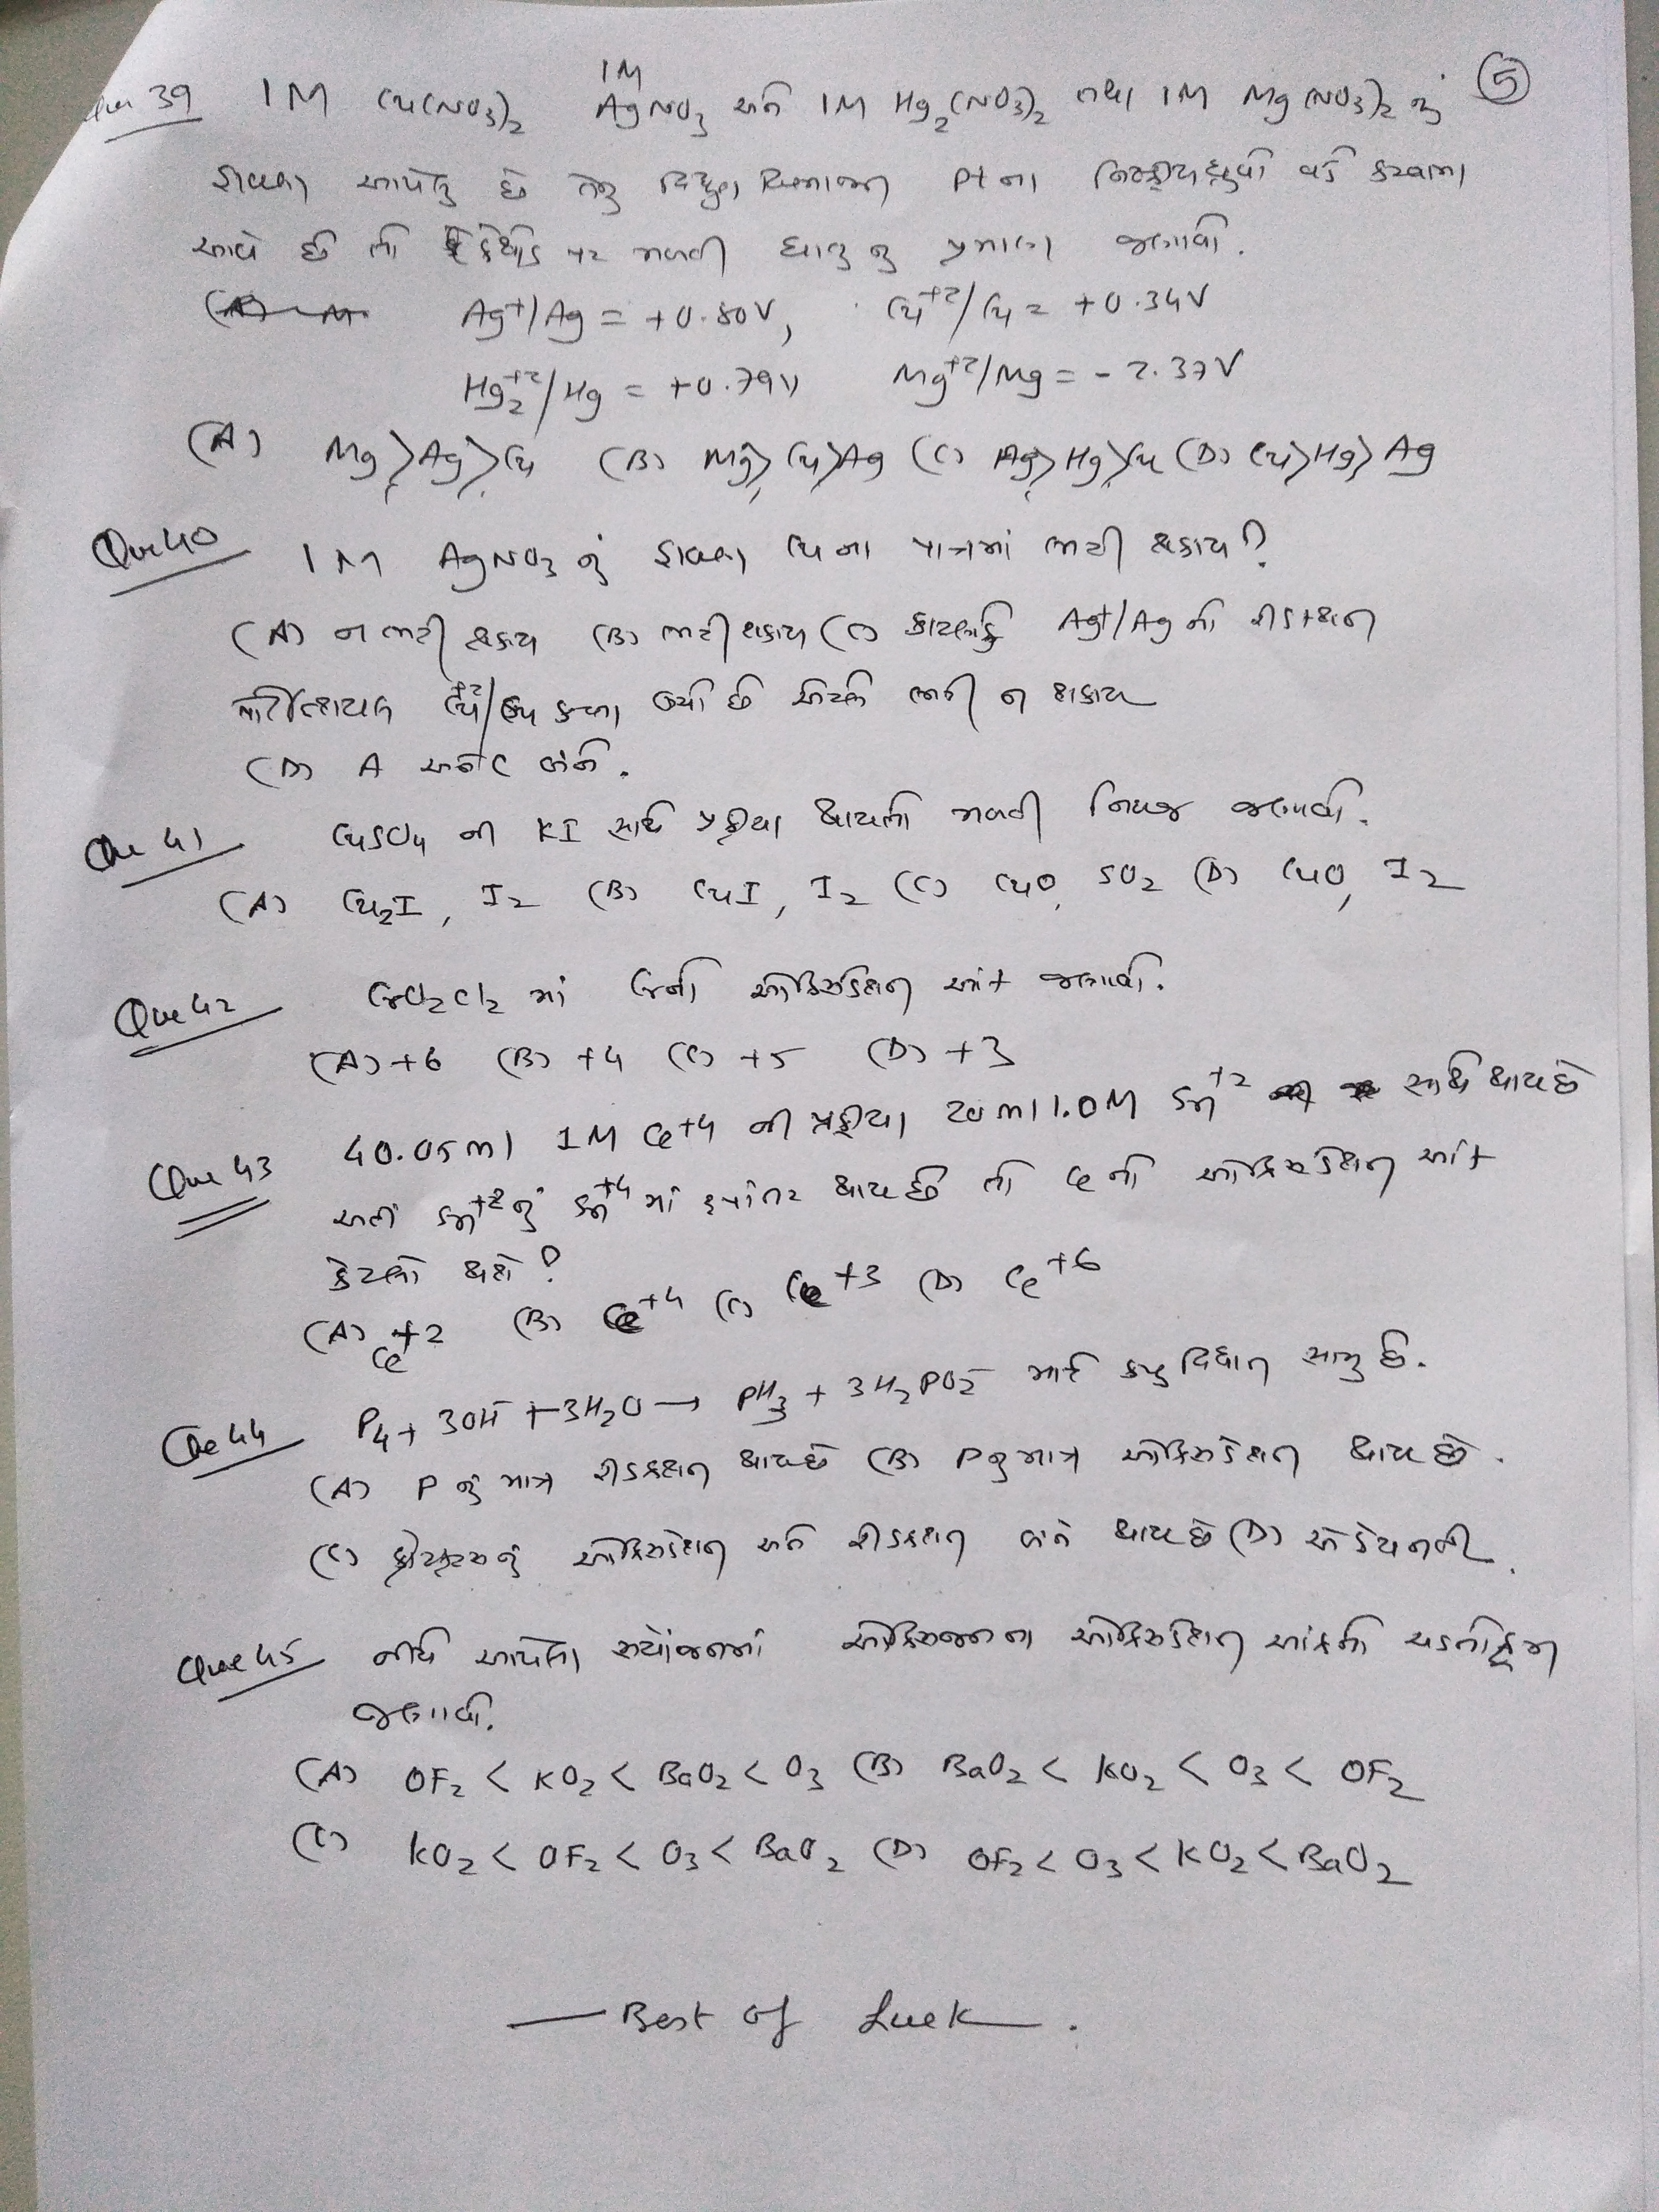 Que 39 1M Cu(NO3)2 1M AgNO3 અને 1M Hg2(NO3)2 તથા 1M Mg(NO3)2 નું (5)
દ્રાવણ આપેલું છે તેનું વિદ્યુત વિભાજન Pt ના નિષ્ક્રીયધ્રુવો વડે કરવામાં
આવે છે તો કેથોડ પર મળતી ધાતુ નું પ્રમાણ જણાવો.
Ag+/Ag = +0.80V, Cu+2/Cu = +0.34V
Hg2+2/Hg = +0.79V Mg+2/Mg = -2.37V
(A) Mg>Ag>Cu (B) Mg>Cu>Ag (C) Ag>Hg>Cu (D) Cu>Hg>Ag
Que 40 1M AgNO3 નું દ્રાવણ Cu ના પાત્રમાં ભરી શકાય?
(A) ન ભરી શકાય (B) ભરી શકાય (C) કારણકે Ag+/Ag નો રીડક્શન
પોટેન્શિયલ Cu+2/Cu કરતા ઉંચો છે એટલે ભરી ન શકાય
(D) A અને C બંને.
Que 41 CuSO4 ની KI સાથે પ્રક્રીયા થાયતો મળતી નિપજ જણાવો.
(A) Cu2I, I2 (B) CuI, I2 (C) CuO, SO2 (D) CuO, I2
Que 42 CrO2Cl2 માં Crનો ઓક્સિડેશન આંક જણાવો.
(A) +6 (B) +4 (C) +5 (D) +3
Que 43 40.05ml 1M Ce+4 ની પ્રક્રીયા 20ml 1.0M Sn+2 સાથે થાય છે
અને Sn+2નું Sn+4 માં રૂપાંતર થાય છે તો Ce નો ઓક્સિડેશન આંક
કેટલો થશે?
(A) Ce+2 (B) Ce+4 (C) Ce+3 (D) Ce+6
Que 44 P4 + 3OH- + 3H2O → PH3 + 3H2PO2- માટે કયુ વિધાન સાચુ છે.
(A) P નું માત્ર રીડક્શન થાય છે (B) P નુ માત્ર ઓક્સિડેશન થાય છે.
(C) ફોસ્ફરસનું ઓક્સિડેશન અને રીડક્શન બંને થાય છે (D) એકેય નહી.
Que 45 નીચે આપેલા સંયોજનમાં ઓક્સિજનના ઓક્સિડેશન આંકનો ચડતોક્રમ
જણાવો.
(A) OF2 < KO2 < BaO2 < O3 (B) BaO2 < KO2 < O3 < OF2
(C) KO2 < OF2 < O3 < BaO2 (D) OF2 < O3 < KO2 < BaO2
— Best of Luck — .